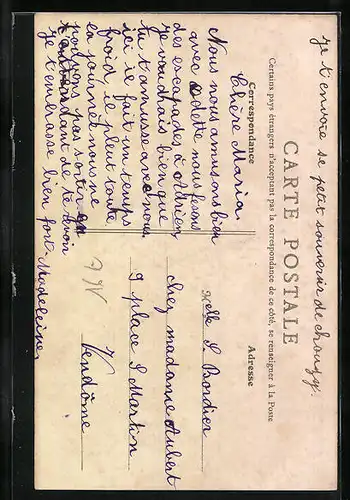 je t'envoie se petit souvenir de chouzy.
CARTE POSTALE
Certains pays étrangers n'acceptant pas la correspondance de ce côté, se renseigner à la Poste
Correspondance
Adresse
Chère Maria
Nous nous amusons bien
avec Odette nous fesons
des escapades à
je voudrais bien que
tu t'amuse avec nous
ici il fait un temps
froid il pleut toute
la journée nous ne
pouvons pas sortir en
attendant de te
je t'embrasse bien fort. Madeleine
Melle S. Bordier
chez madame Aubert
9 place S Martin
Vendôme